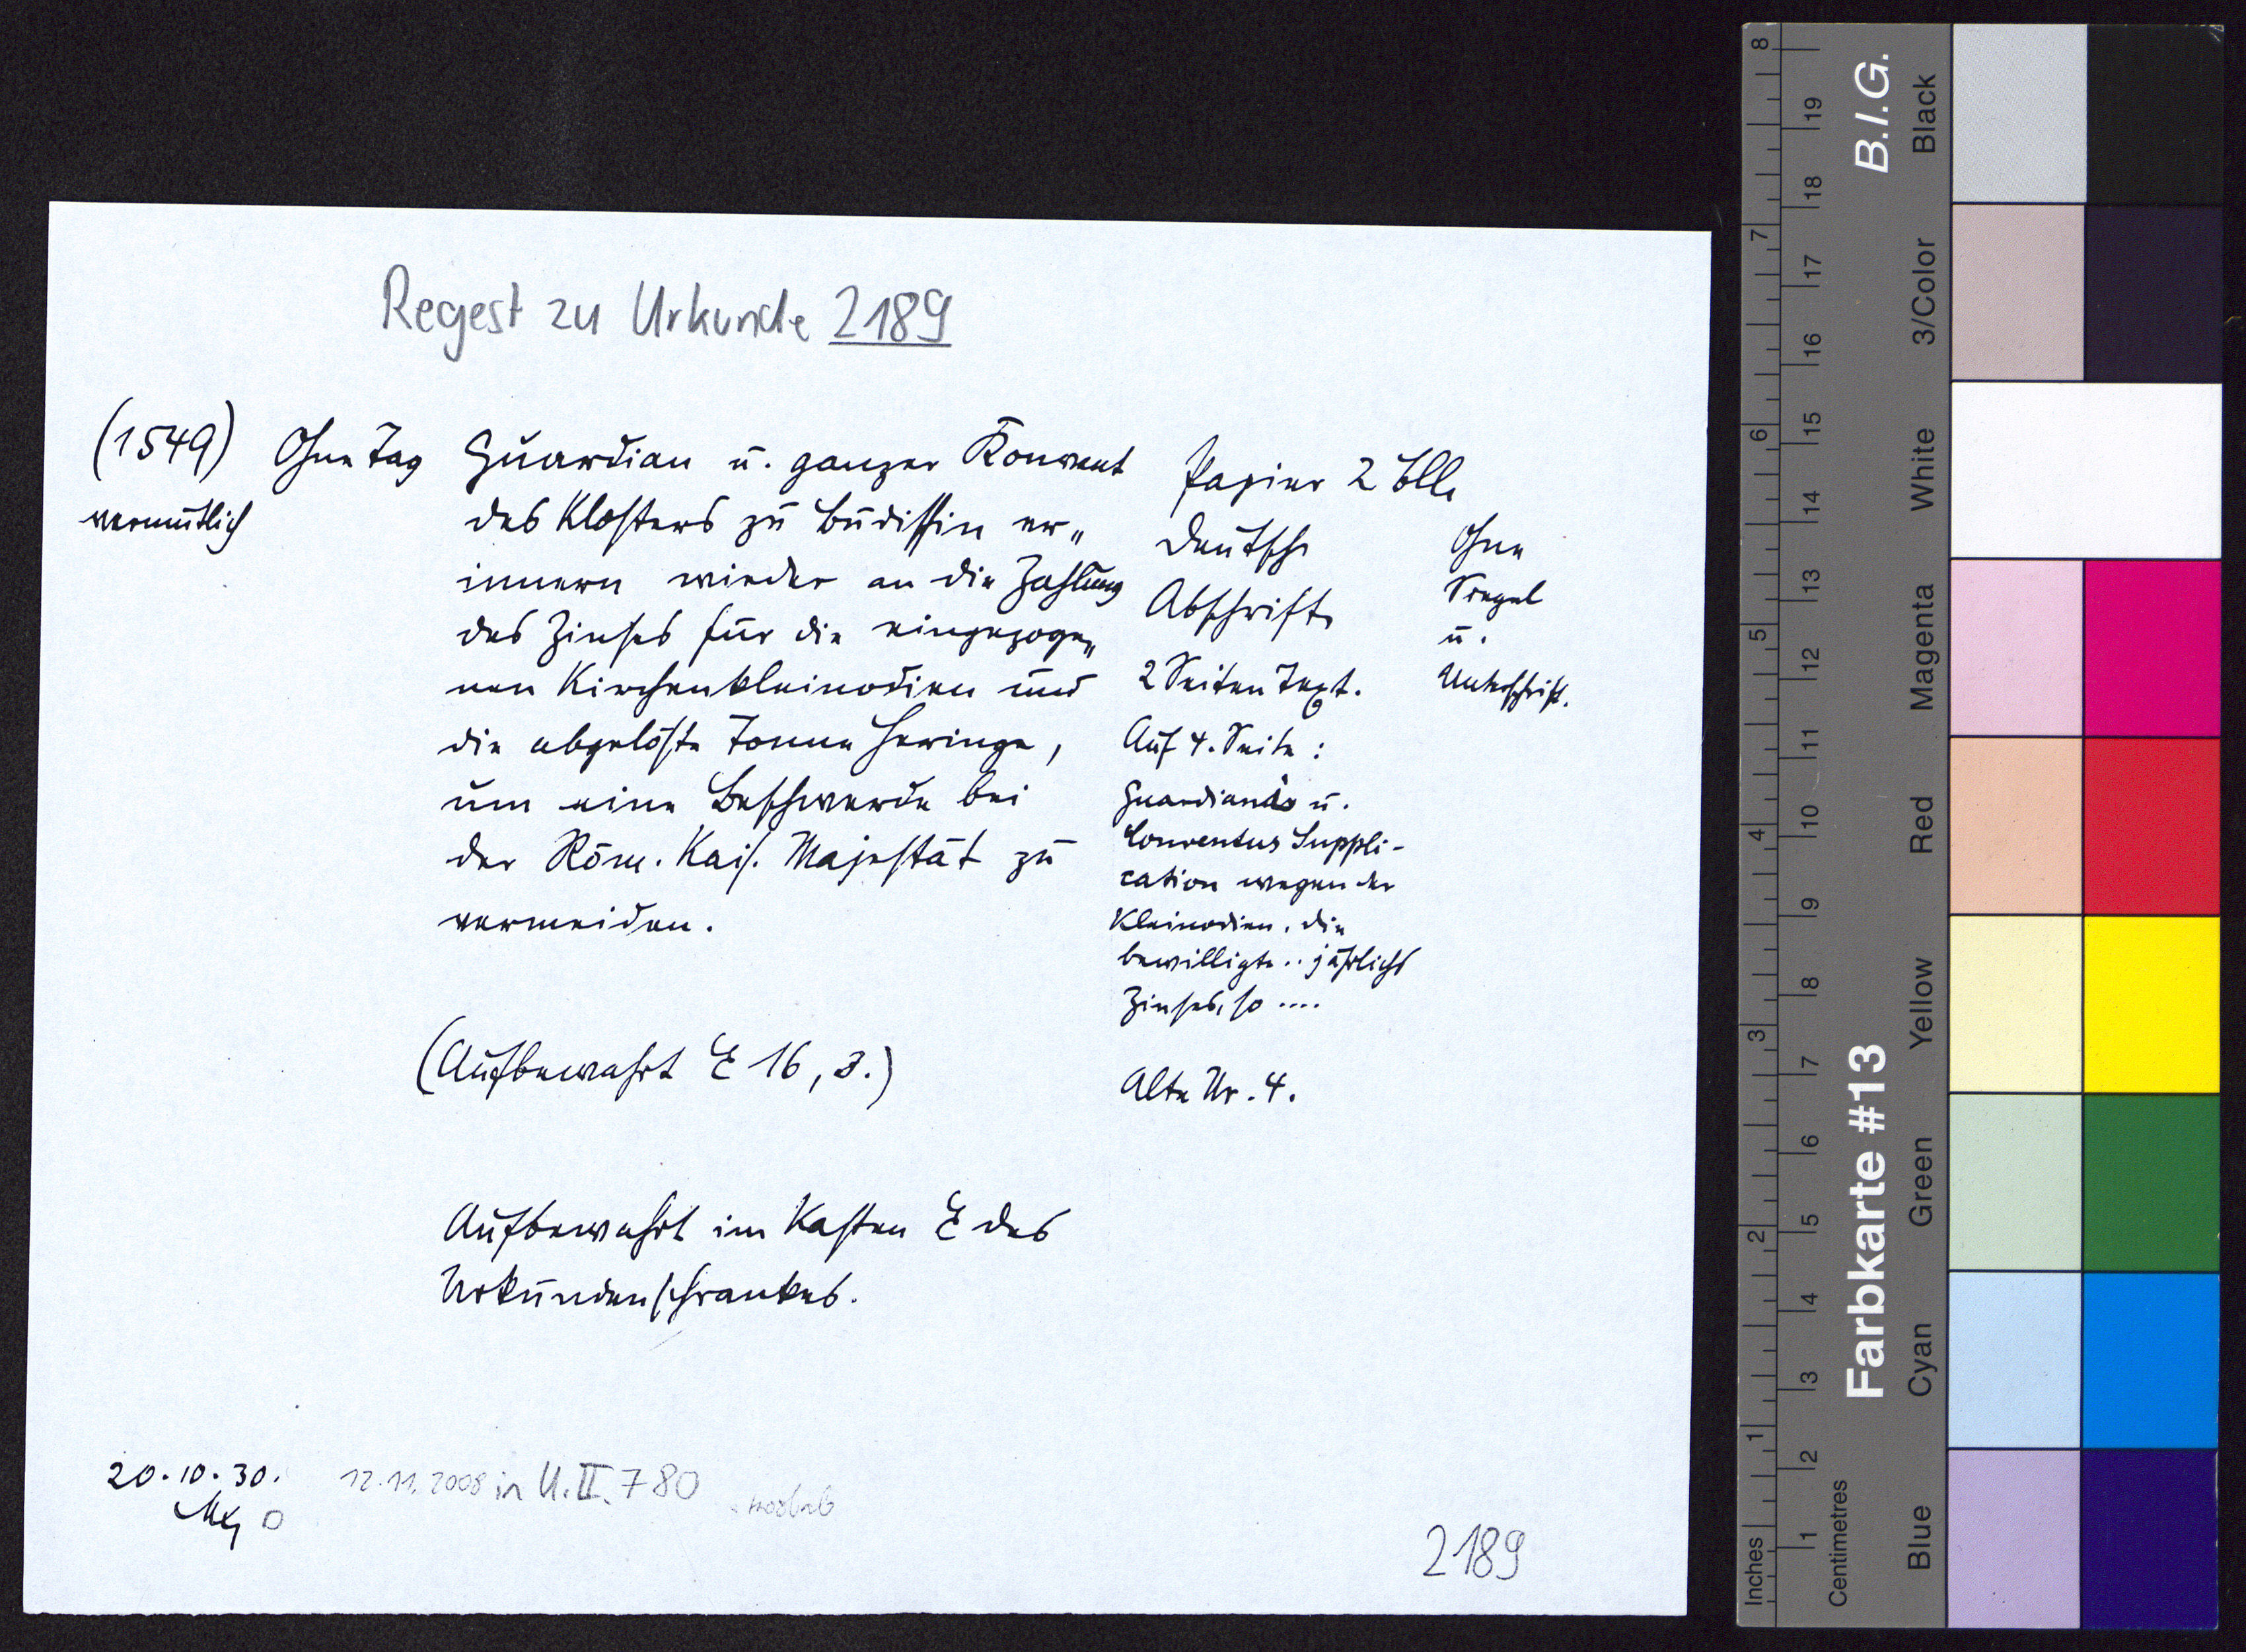 Regest zu Urkunde 2189
(1549) vermutlich
Ohne Tag
Guardian u. ganzer Konvent
des Klosters zu Budissin er„
innern wieder an die Zahlung
des Zinses für die eingezoge„
nen Kirchenkleinodien und
die abgelöste Tonne Heringe,
um eine Beschwerde bei
der Röm. Kais. Majestät zu
vermeiden.
(Aufbewahrt E 16, 3.)
Aufbewahrt im Kasten E des
Urkundenschrankes.
Papier 2 Bll.
Deutsche
Abschrift.
2 Seiten Text.
Auf 4. Seite:
Guardianus u.
Conventus Suppli-
cation wegen der
Kleinodien. die
bewilligte .. jährlichs
Zinses, so ....
Alte Nr. 4.
Ohne
Siegel
u.
Unterschrift.
20.10.30.
12.11.2008 in U.II.780
2189
8
7
6
5
4
3
2
1
Inches
19
18
17
16
15
14
13
12
11
10
9
8
7
6
5
4
3
2
1
Centimetres
Farbkarte #13
B.I.G.
Blue
Cyan
Green
Yellow
Red
Magenta
White
3/Color
Black